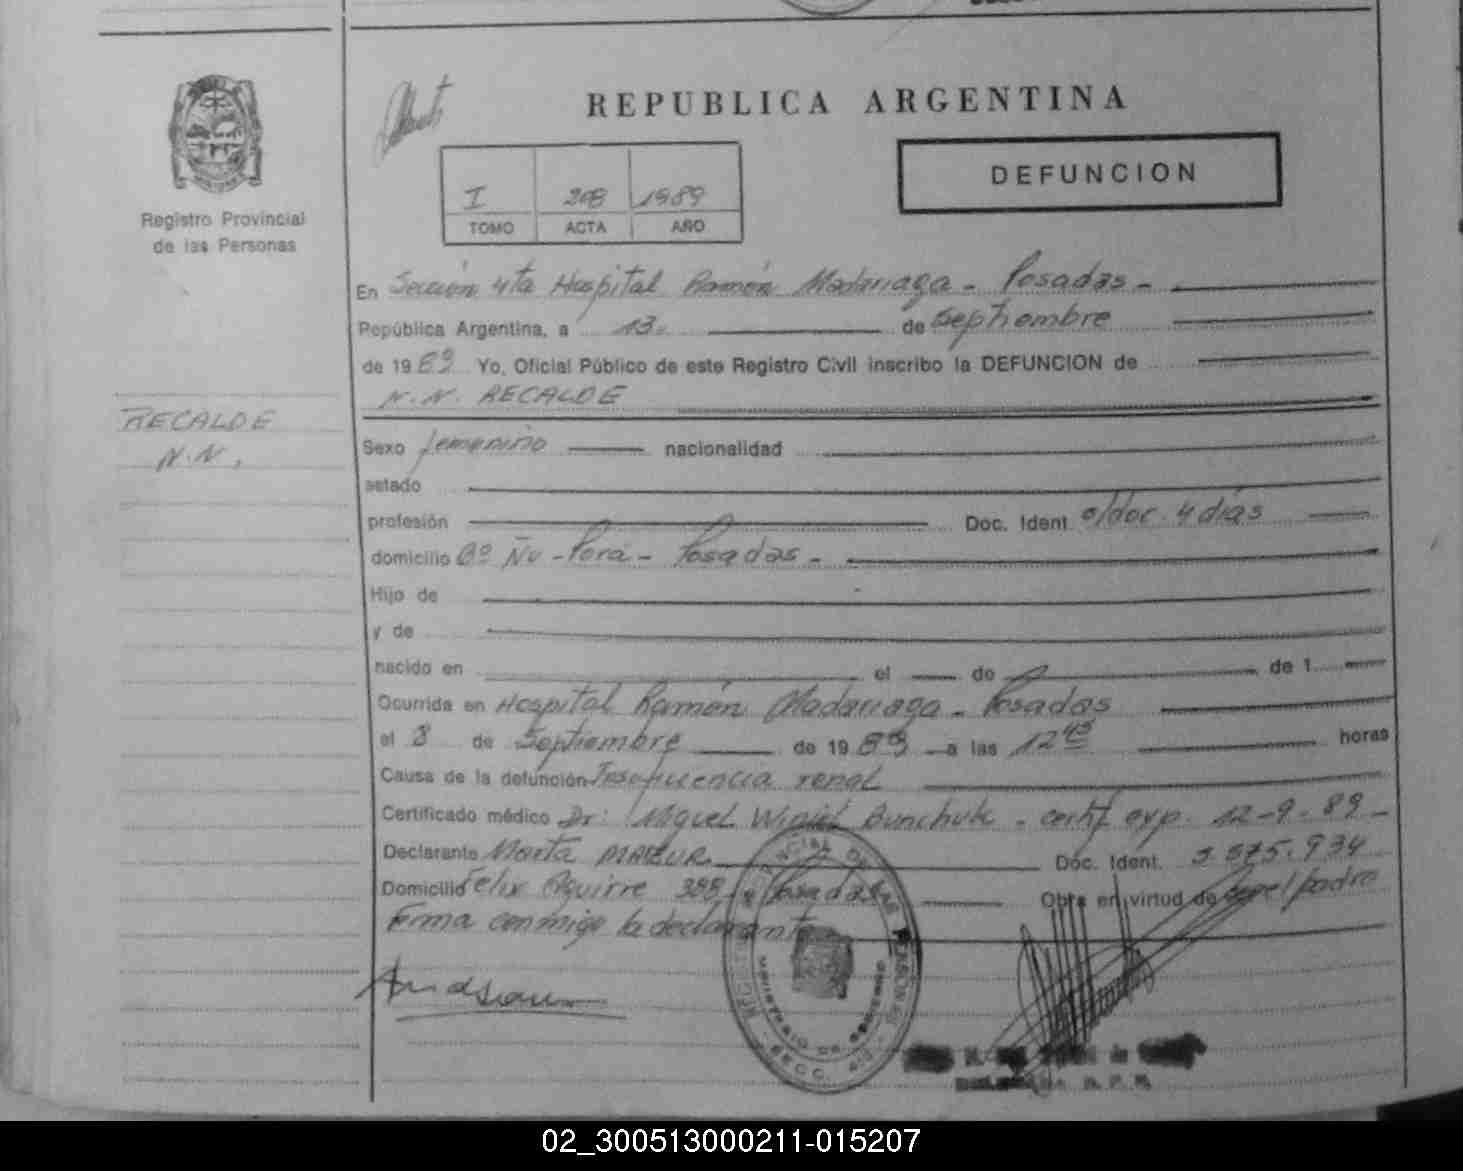 REPUBLICA ARGENTINA
DEFUNCION
I 208 1989
TOMO ACTA AÑO
Registro Provincial
de las Personas
En Sección 4ta Hospital Ramón Madariaga - Posadas -
República Argentina, a 13 de Septiembre
de 1989 Yo, Oficial Público de este Registro Civil inscribo la DEFUNCION de
N.N. RECALDE
RECALDE
N.N.
Sexo femenino nacionalidad
estado
profesión Doc. Ident s/doc. 4 días
domicilio Bº Ñu-Porá - Posadas -
Hijo de
y de
nacido en el de de 1
Ocurrida en Hospital Ramón Madariaga - Posadas
el 8 de Septiembre de 1989 a las 12 45 horas
Causa de la defunción Insuficiencia renal
Certificado médico Dr: Miguel Bunchuk - certif exp. 12-9-89-
Declarante Marta Doc. Ident. 3.575.934
Domicilio Felix Aguirre 388 - Posadas Obra en virtud de
firma conmigo la declarante
MINISTERIO DE GOBIERNO
SECC. 4ta
02_300513000211-015207